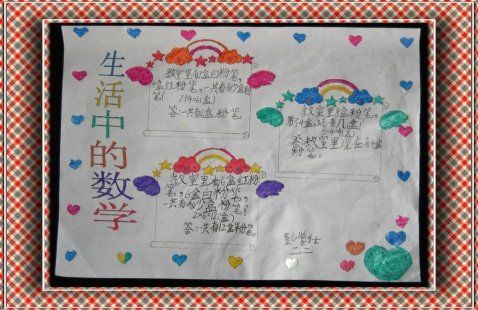 生活中的数学
教室里有2盒白粉笔,
4盒红粉笔,一共有多少盒粉
笔?
2+4=6(盒)
答:一共有6盒粉笔
教室里
粉笔,
用了4盒,还有几盒?
答:教室里还有
粉笔。
教室里有6盒红粉
笔,6盒白
粉笔,
一共有多少盒粉笔?
2×6=12(盒)
答:一共有12盒粉笔。
彭学仕
二二